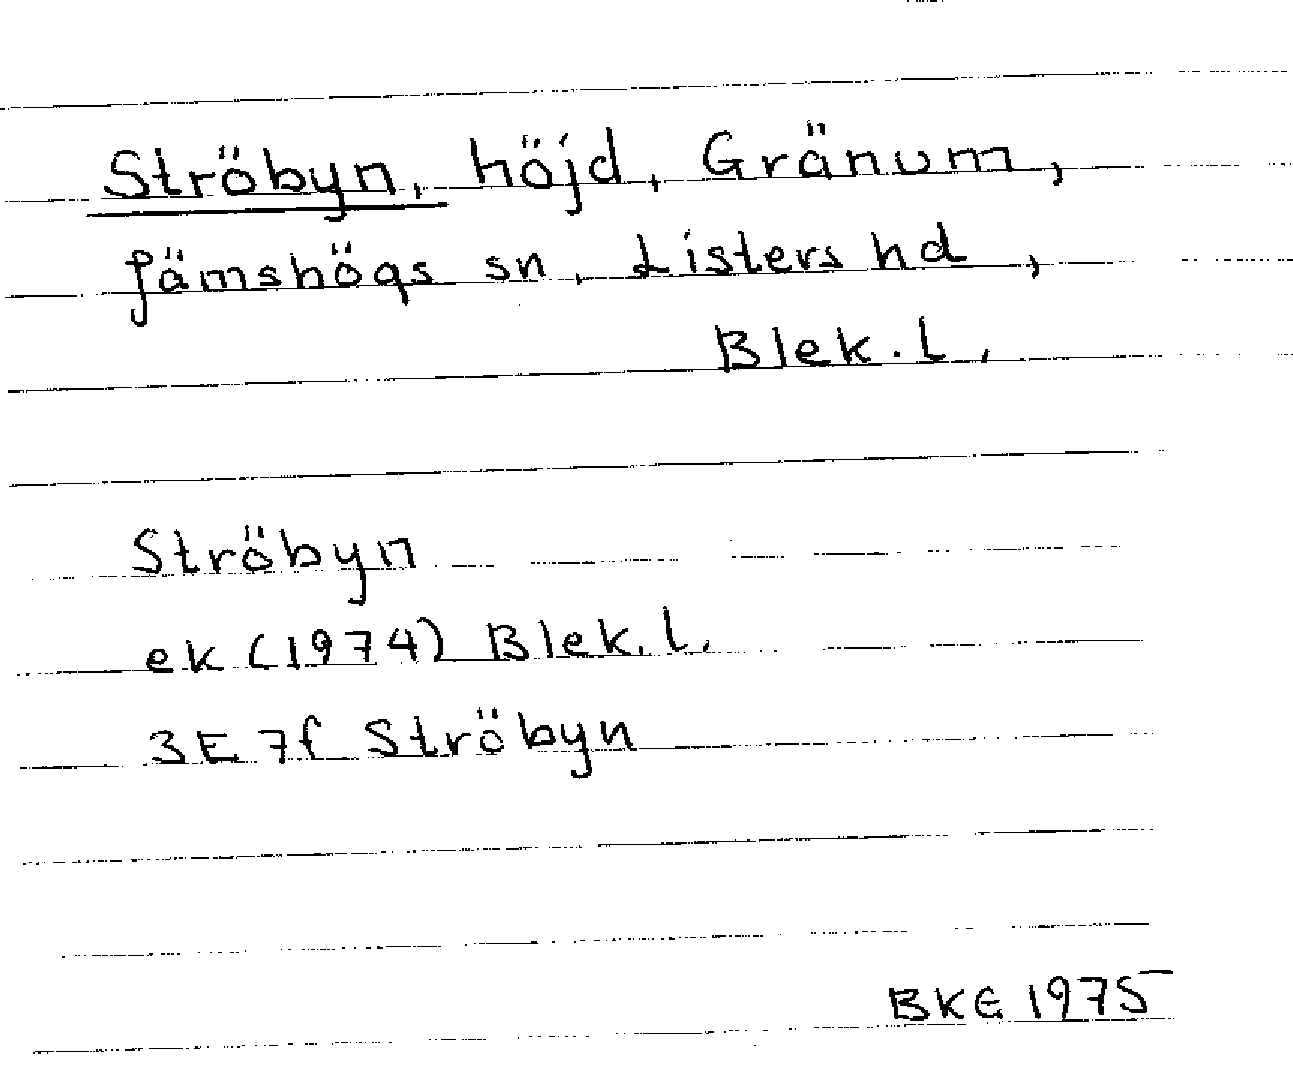 Ströbyn, höjd, Gränum,
Jämshögs sn, Listers hd,
Blek. l.
Ströbyn
ek (1974) Blek. l.
3E 7f Ströbyn
BKE 1975